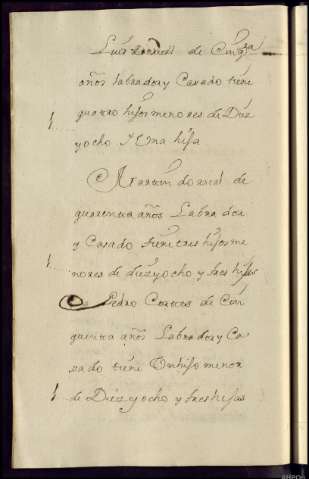 Luis de Cinq.ta
años labrador y Casado tiene
quatro hijos menores de Diez
yocho Y Una hija
Martin de
quarenta años Labrador
y Casado tiene tres hijos me
nores de diezyocho y tres hijas
Pedro Cortes de Cin
quenta años Labrador y Ca
sado tiene Un hijo menor
de Diezyocho y tres hijas